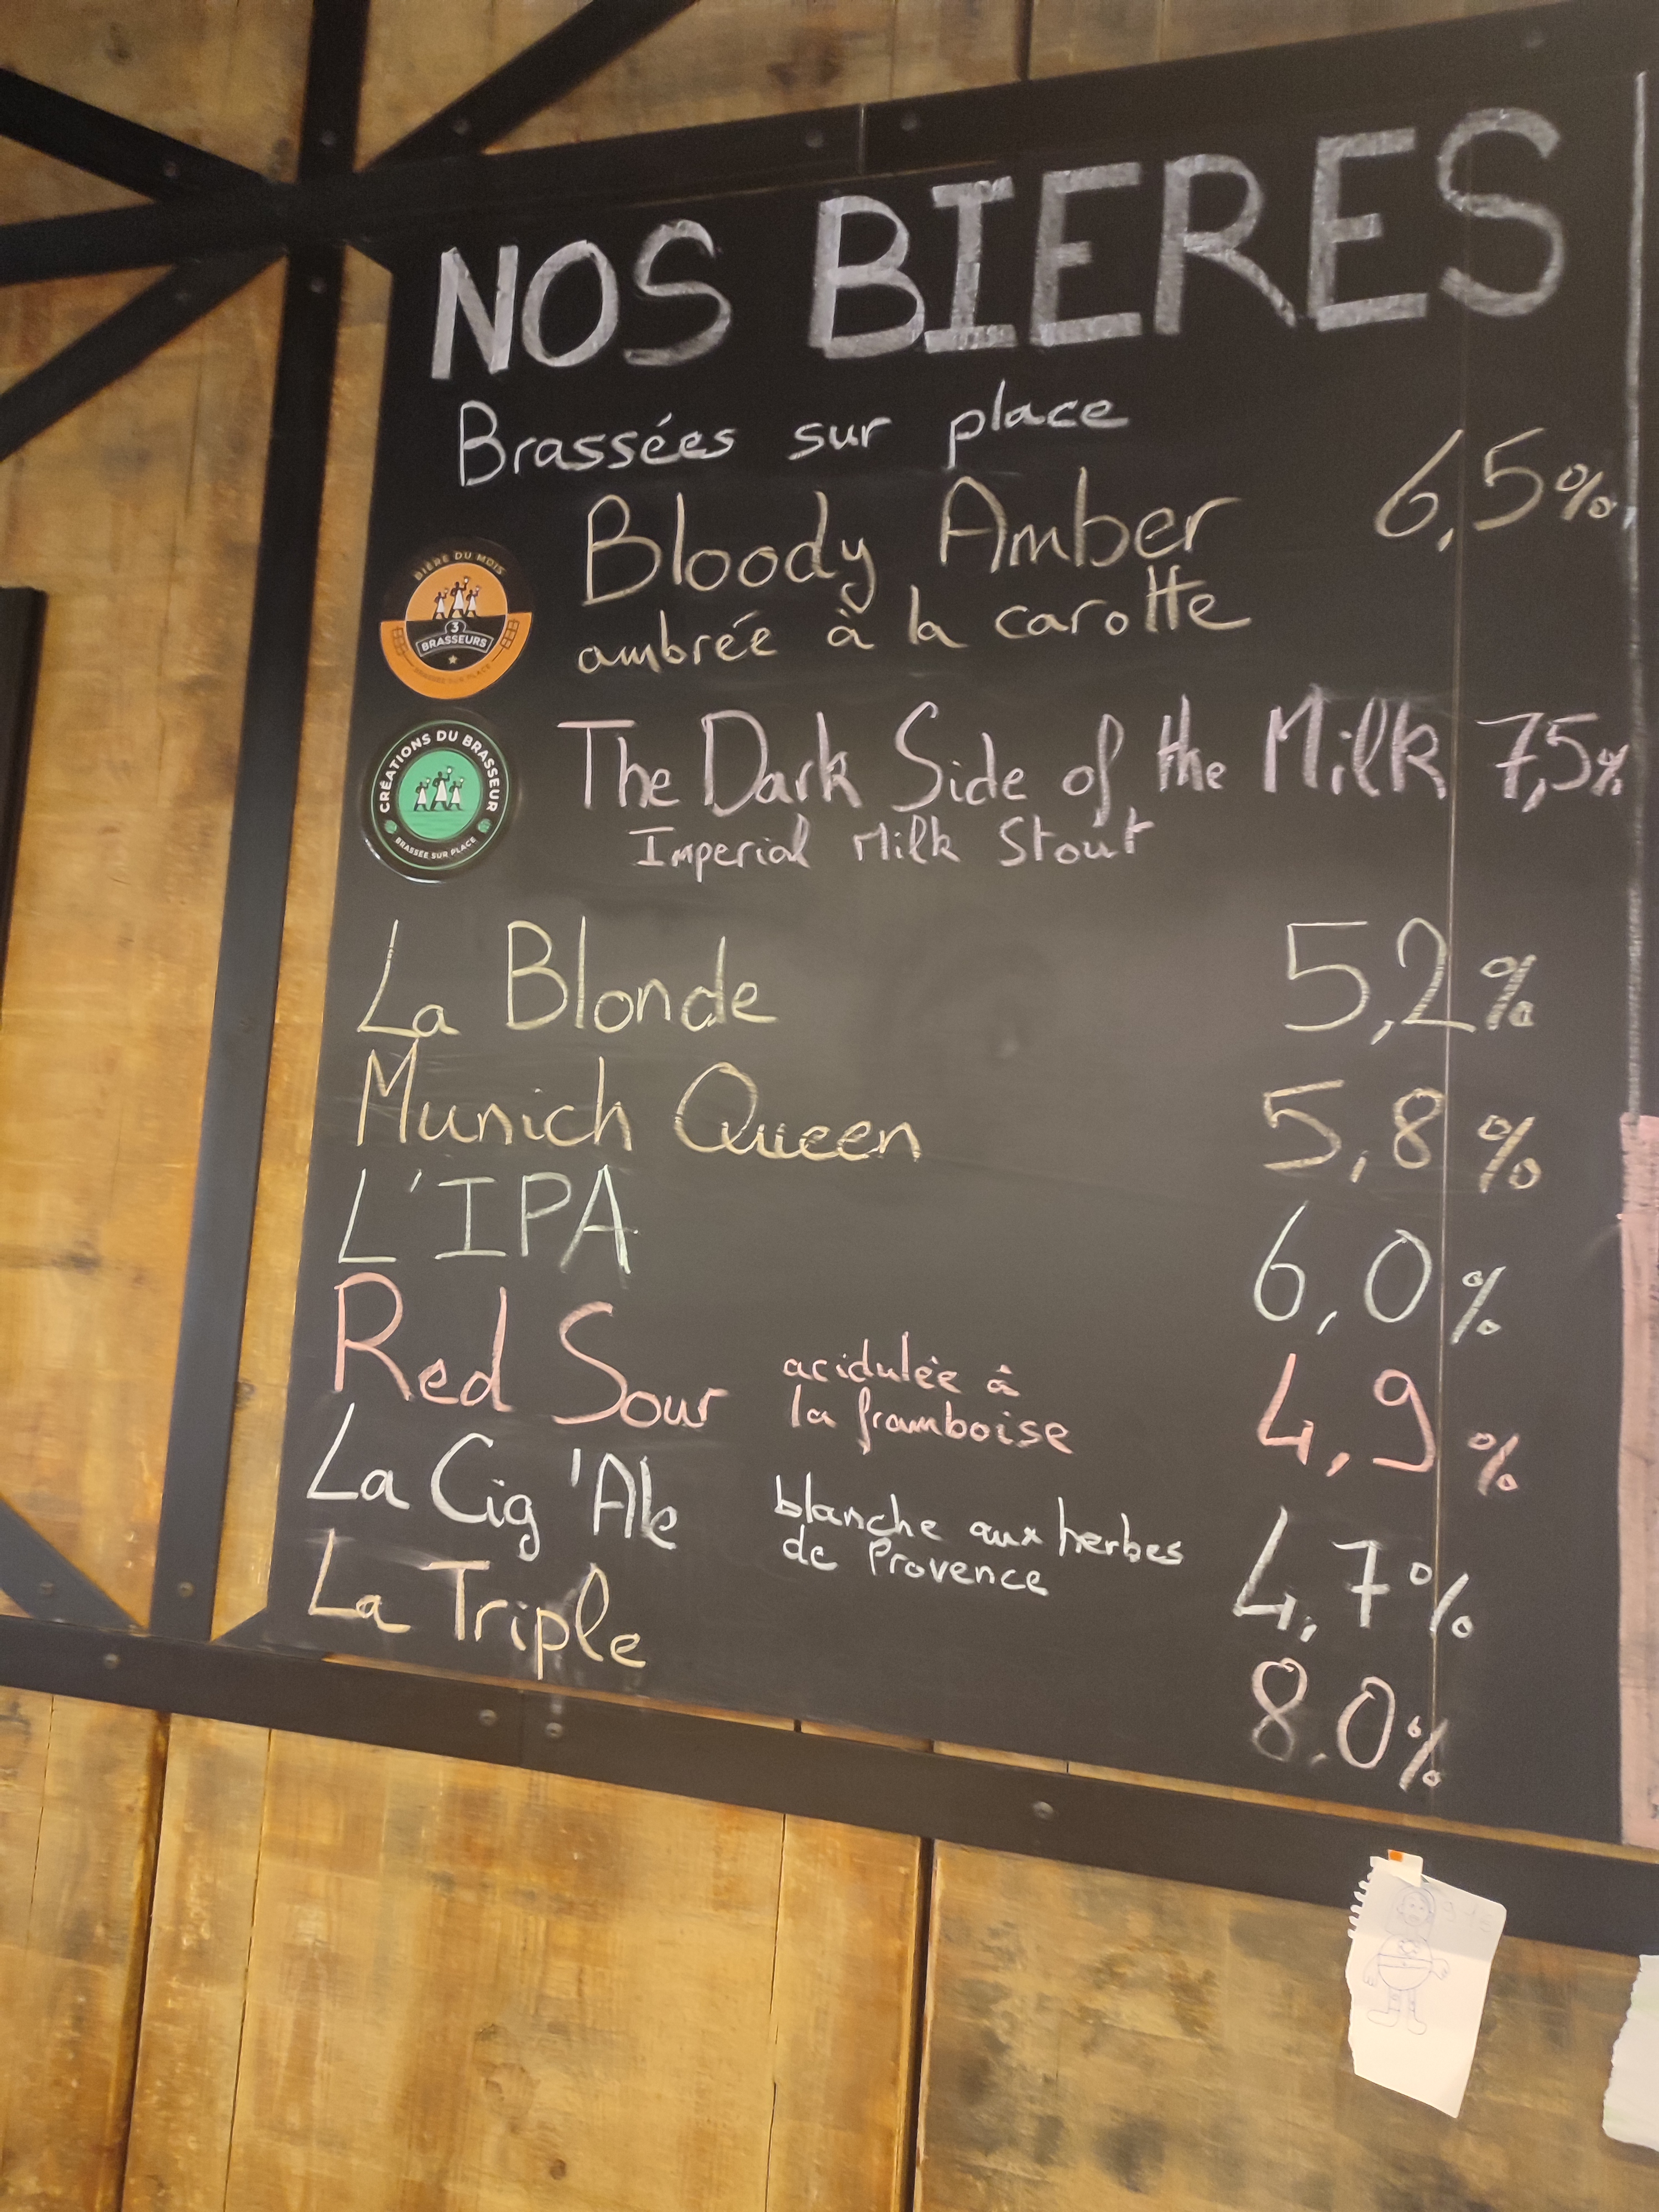 NOS BIERES
Brassées sur place
Bloody Amber 6,5%
ambrée à la carotte
BIÈRE DU MOIS
3
BRASSEURS
BRASSÉE SUR PLACE
The Dark Side of the Milk 7,5%
Imperial Milk Stout
CRÉATIONS DU BRASSEUR
BRASSÉE SUR PLACE
La Blonde 5,2%
Munich Queen 5,8%
L'IPA 6,0%
Red Sour acidulée à 4,9%
la framboise
La Cig'Ale blanche aux herbes 4,7%
de Provence
La Triple 8.0%